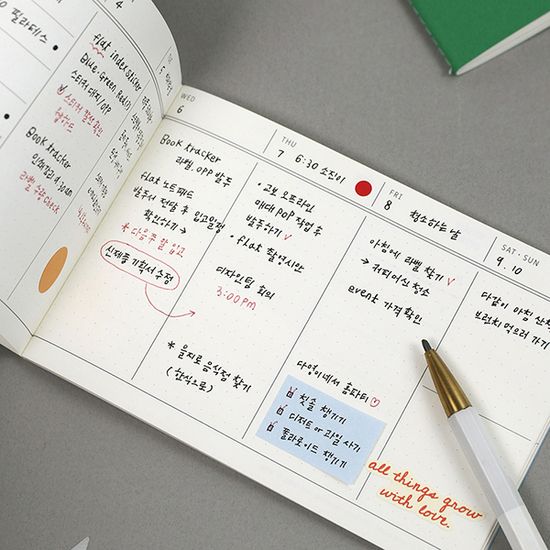 4
5
필라테스
flat index sticker
Blue, Green, Red
스티커 대지/opp
Book tracker
인쇄감리 9:30am
라벨 수량 check
WED
6
Book tracker
라벨, opp 발주
flat 노트패드
발주서 전달 후 입고일정
확인하기 →
* 다음주 말 입고
신제품 기획서 수정
* 을지로 음식점 찾기
(한식으로)
THU
7 6:30 소진이
• 교보 오프라인
매대 pop 작업 후
발주하기 v
• flat 촬영시안
디자인팀 회의
3:00 pm
FRI
8 청소하는 날
아침에 라벨 찾기 v
→ 커피머신 청소
event 가격 확인
다영이네서 홈파티
칫솔 챙기기
디저트 or 과일 사기
폴라로이드 챙기기
SAT. SUN
9. 10
다같이 아침 산책
브런치 먹으러 가기
all things grow
with love.